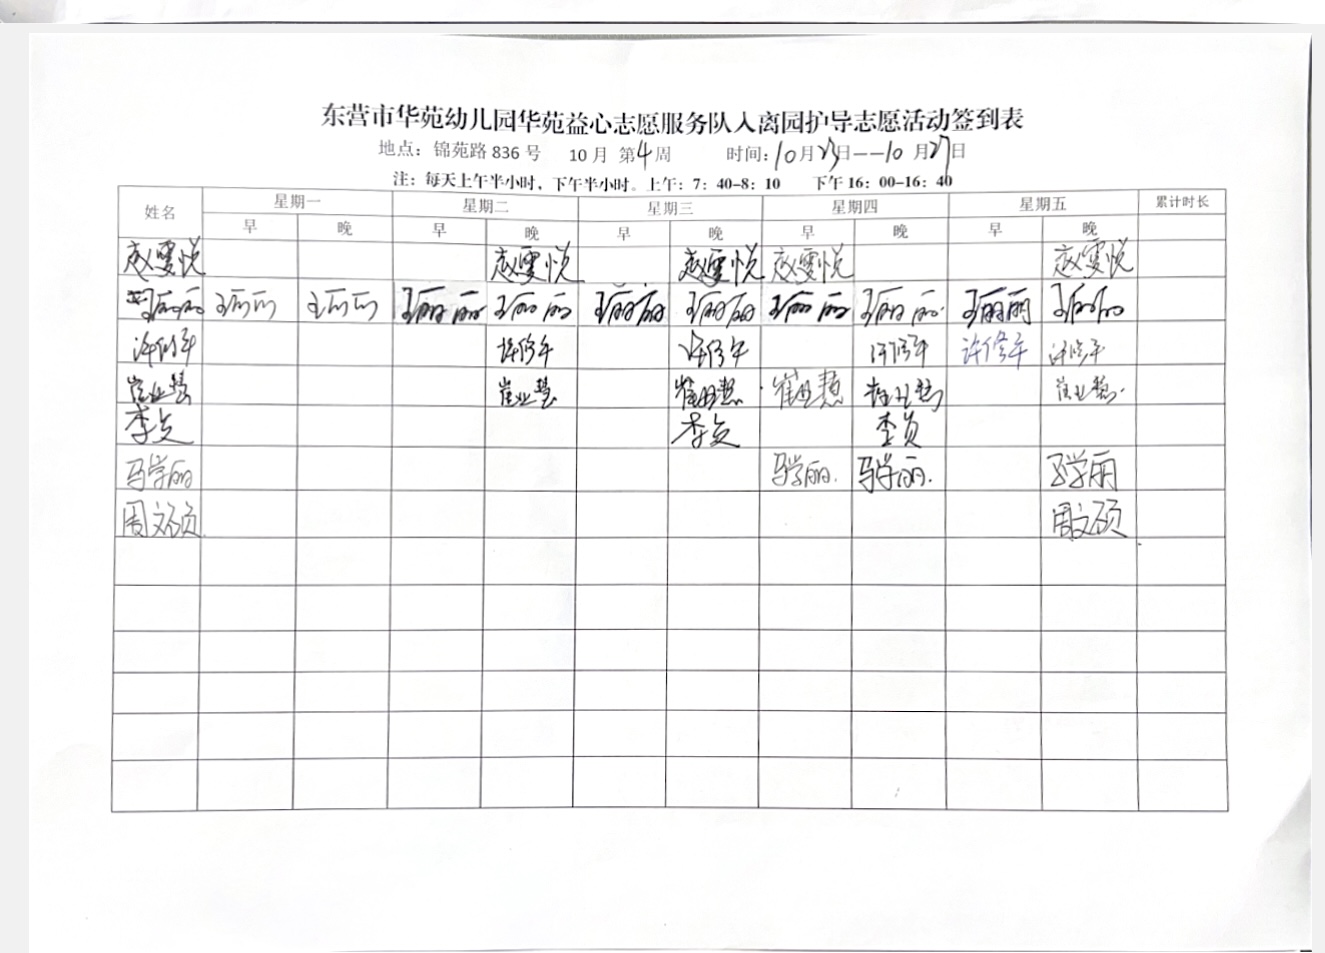 东营市华苑幼儿园华苑益心志愿服务队入离园护导志愿活动签到表
地点：锦苑路 836 号 10 月 第4周 时间：10月23日——10 月27日
注：每天上午半小时，下午半小时。上午：7：40-8：10 下午16：00-16：40
姓名 星期一 星期二 星期三 星期四 星期五 累计时长
早 晚 早 晚 早 晚 早 晚 早 晚
赵雯悦 赵雯悦 赵雯悦 赵雯悦 赵雯悦
王丽丽 王丽丽 王丽丽 王丽丽 王丽丽 王丽丽 王丽丽 王丽丽 王丽丽 王丽丽 王丽丽
许修年 许修年 许修年 许修年 许修年 许修年
崔业慧 崔业慧 崔业慧 崔业慧 崔业慧 崔业慧
李贞 李贞 李贞
马学丽 马学丽. 马学丽. 马学丽
周文硕 周文硕